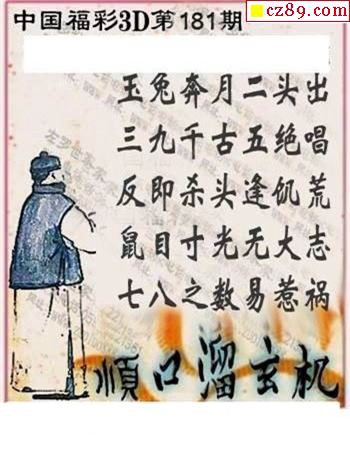 cz89.com
中国福彩3D第181期
玉兔奔月二头出
三九千古五绝唱
反即杀头逢饥荒
鼠目寸光无大志
七八之数易惹祸
顺口溜玄机